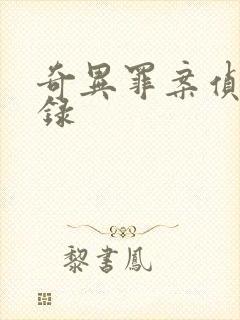 奇異罪案偵
錄
黎書鳳